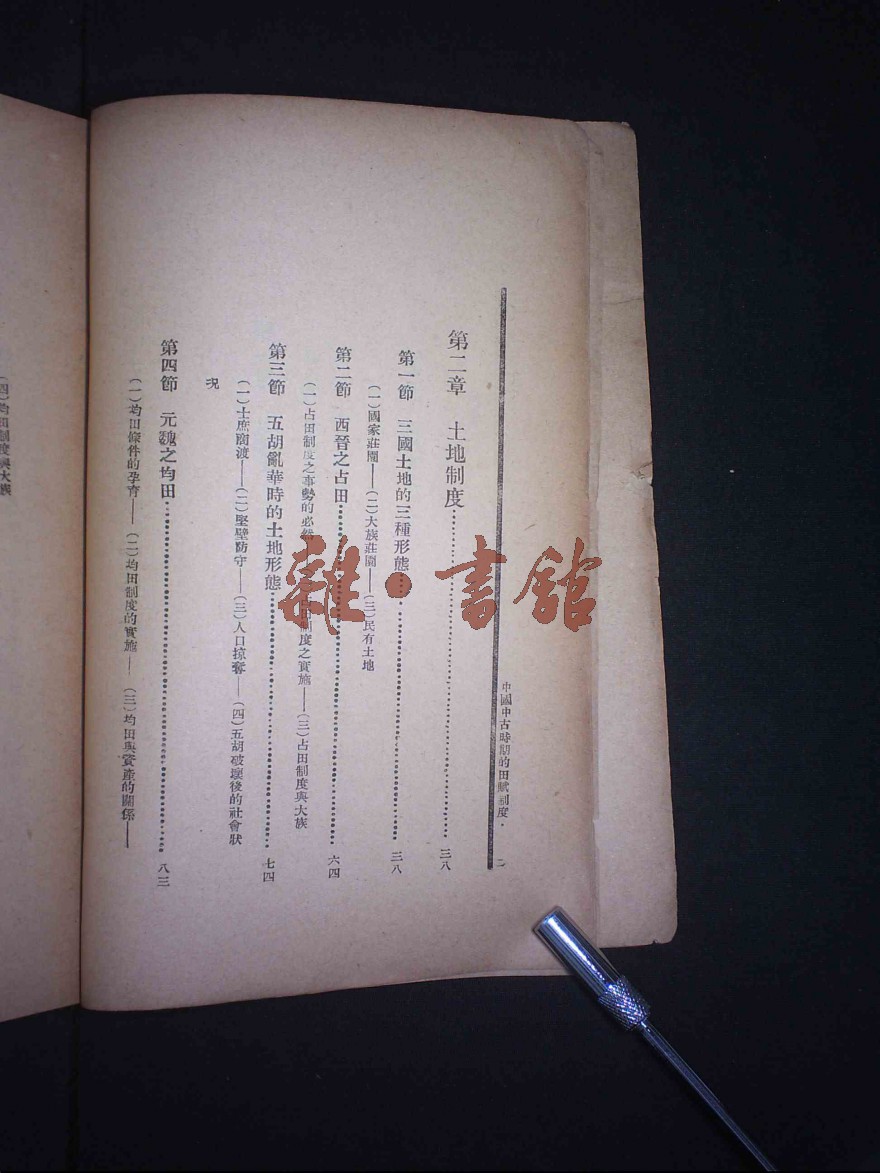 中國中古時期的田賦制度．
二
第二章　土地制度……三八
第一節　三國土地的三種形態……三八
（一）國家莊園——（二）大族莊園——（三）民有土地
第二節　西晉之占田……六四
（一）占田制度之事勢的必然 占田制度之實施——（三）占田制度與大族
第三節　五胡亂華時的土地形態……七四
（一）士庶南渡——（二）堅壁防守——（三）人口掠奪——（四）五胡破壞後的社會狀
況
第四節　元魏之均田……八三
（一）均田條件的孕育——（二）均田制度的實施——（三）均田與資產的關係——
（四）均田制度與大族
雜·書館